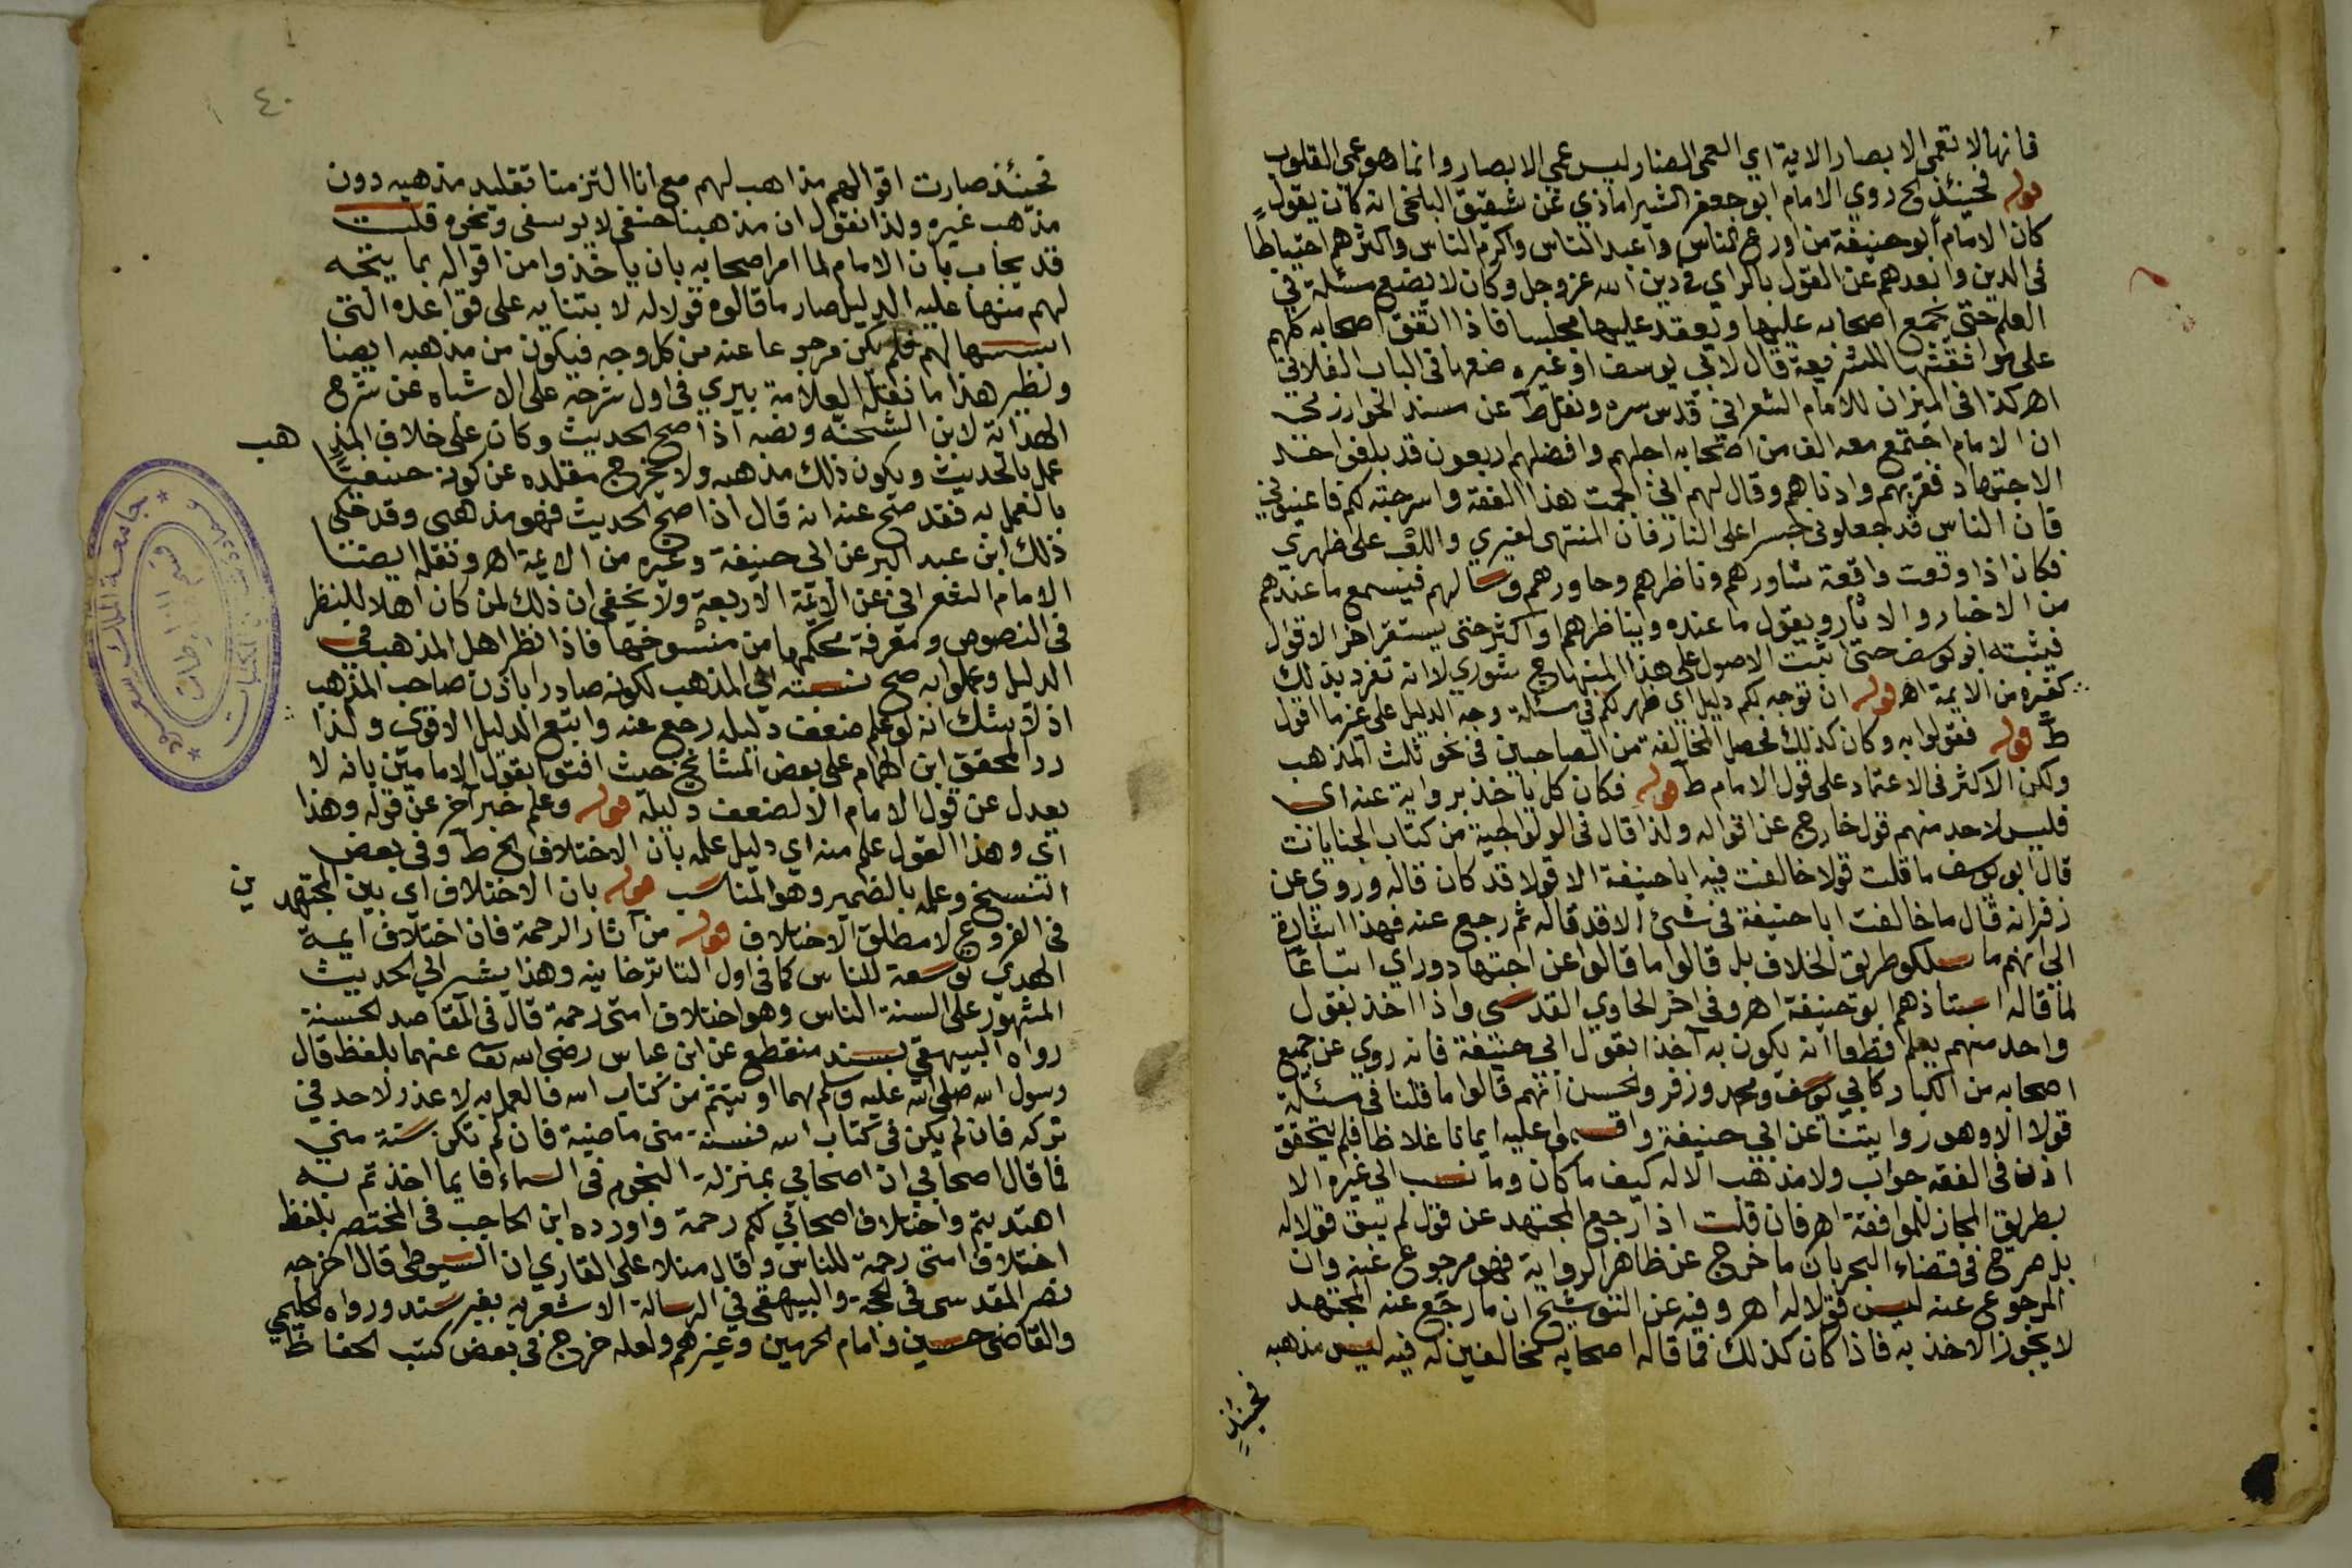 فانها لا تعمى الابصار الاية اي العمى الضار ليس عمى الابصار وانما هو عمى القلوب
قوله فحينئذ الخ روي الامام ابو جعفر الشيراماذي عن شقيق البلخي انه كان يقول
كان الامام ابو حنيفة من اورع الناس واعبد الناس واكرم الناس واكثرهم احتياطا
في الدين وابعدهم عن القول بالراي في دين الله عز وجل وكان لا يضع مسئلة في
العلم حتى يجمع اصحابه عليها ويعقد عليها مجلسا فاذا اتفق اصحابه كلهم
على موافقتها للشريعة قال لابي يوسف او غيره ضعها في الباب الفلاني
اهـ كذا في الميزان للامام الشعراني قدس سره ونقل ط عن مسند الخوارزمي
ان الامام اجتمع معه الف من اصحابه اجلهم وافضلهم اربعون قد بلغوا حد
الاجتهاد فقربهم وادناهم وقال لهم اني الجمت هذا الفقه واسرجته لكم فاعينوني
فان الناس قد جعلوني جسرا على النار فان المنتهى لغيري واللعب على ظهري
فكان اذا وقعت واقعة شاورهم وناظرهم وحاورهم وسالهم فيسمع ما عندهم
من الاخبار والاثار ويقول ما عنده ويناظرهم او اكثر حتى يستقر اخر الاقوال
فيثبته ابو يوسف حتى اثبت الاصول على هذا المنهاج شوري لا انه تفرد بذلك
كغيره من الايمة اهـ قوله ان توجه لكم دليل اي ظهر لكم في مسئلة وجه الدليل على غير ما اقول
ط قوله فقولوا به وكان كذلك فحصل المخالفة من الصاحبين في نحو ثلث المذهب
ولكن الاكثر في الاعتماد على قول الامام ط قوله فكان كل ياخذ برواية عنه اي
فليس لاحد منهم قول خارج عن اقواله ولذا قال في الولوالجية من كتاب الجنايات
قال ابو يوسف ما قلت قولا خالفت فيه ابا حنيفة الا قولا قد كان قاله وروي عن
زفر انه قال ما خالفت ابا حنيفة في شئ الا قد قاله ثم رجع عنه فهذا اشارة
الى انهم ما سلكوا طريق الخلاف بل قالوا ما قالوا عن اجتهاد وراي اتباعا
لما قاله استاذهم ابو حنيفة اهـ وفي اخر الحاوي القدسي واذا اخذ بقول
واحد منهم يعلم قطعا انه يكون به آخذا بقول ابي حنيفة فانه روي عن جميع
اصحابه من الكبار كابي يوسف ومحمد وزفر والحسن انهم قالوا ما قلنا في مسئلة
قولا الا وهو روايتنا عن ابي حنيفة واقسموا عليه ايمانا غلاظا فلم يتحقق
اذن في الفقه جواب ولا مذهب الا له كيف ما كان وما نسب الى غيره الا
بطريق المجاز للموافقة اهـ فان قلت اذا رجع المجتهد عن قول لم يبق قولا له
بل صرح في قضاء البحر بان ما خرج عن ظاهر الرواية فهو مرجوع عنه وان
المرجوع عنه ليس قولا له اهـ وفيه عن التوشيح ان ما رجع عنه المجتهد
لا يجوز الاخذ به فاذا كان كذلك فما قاله اصحابه مخالفين له فيه ليس مذهبه
فحينئذ
٤٠
فحينئذ صارت اقوالهم مذاهب لهم مع انا التزمنا تقليد مذهبه دون
مذهب غيره ولذا نقول ان مذهبنا حنفي لا يوسفي ونحوه قلت
قد يجاب بان الامام لما امر اصحابه بان ياخذوا من اقواله بما يتجه
لهم منها عليه الدليل صار ما قالوه قولا له لابتنايه على قواعده التي
اسسها لهم فلم يكن مرجوعا عنه من كل وجه فيكون من مذهبه ايضا
ونظير هذا ما نقله العلامة بيري في اول شرحه على الاشباه عن شرح
الهداية لابن الشحنه ونصه اذا صح الحديث وكان على خلاف المذهب
عمل بالحديث ويكون ذلك مذهبه ولا يخرج مقلده عن كونه حنفيا
بالعمل به فقد صح عنه انه قال اذا صح الحديث فهو مذهبي وقد حكى
ذلك ابن عبد البر عن ابي حنيفة وغيره من الايمة اهـ ونقله ايضا
الامام الشعراني عن الائمة الاربعة ولا يخفى ان ذلك لمن كان اهلا للنظر
في النصوص ومعرفة محكمها من منسوخها فاذا نظر اهل المذهب في
الدليل وعملوا به صح نسبته الى المذهب لكونه صادرا باذن صاحب المذهب
اذ لا شك انه لو علم ضعف دليله رجع عنه واتبع الدليل الاقوى ولذا
رد المحقق ابن الهمام على بعض المشائخ حيث افتوا بقول الامامين بانه لا
يعدل عن قول الامام الا لضعف دليله قوله وعلم خبر آخر عن قوله وهذا
اي وهذا القول علم منه اي دليل علمه بان الاختلاف الخ ط وفي بعض
النسخ وعلمه بالضمير وهو المناسب قوله بان الاختلاف اي بين المجتهدين
في الفروع لا مطلق الاختلاف قوله من آثار الرحمة فان اختلاف ايمة
الهدي توسعة للناس كما في اول التاترخانيه وهذا يشير الى الحديث
المشهور على السنة الناس وهو اختلاف امتي رحمة قال في المقاصد الحسنة
رواه البيهقي بسند منقطع عن ابن عباس رضي الله تعالى عنهما بلفظ قال
رسول الله صلى الله عليه وسلم مهما اوتيتم من كتاب الله فالعمل به لا عذر لاحد في
تركه فان لم يكن في كتاب الله فسنة مني ماضية فان لم تكن سنة مني
فما قال اصحابي ان اصحابي بمنزلة النجوم في السماء فايما اخذتم به
اهتديتم واختلاف اصحابي لكم رحمة واورده ابن الحاجب في المختصر بلفظ
اختلاف امتي رحمة للناس وقال منلا على القاري ان السيوطي قال اخرجه
نصر المقدسي في الحجة والبيهقي في الرسالة الاشعرية بغير سند ورواه الحليمي
والقاضي حسين وامام الحرمين وغيرهم ولعله خرج في بعض كتب الحفاظ